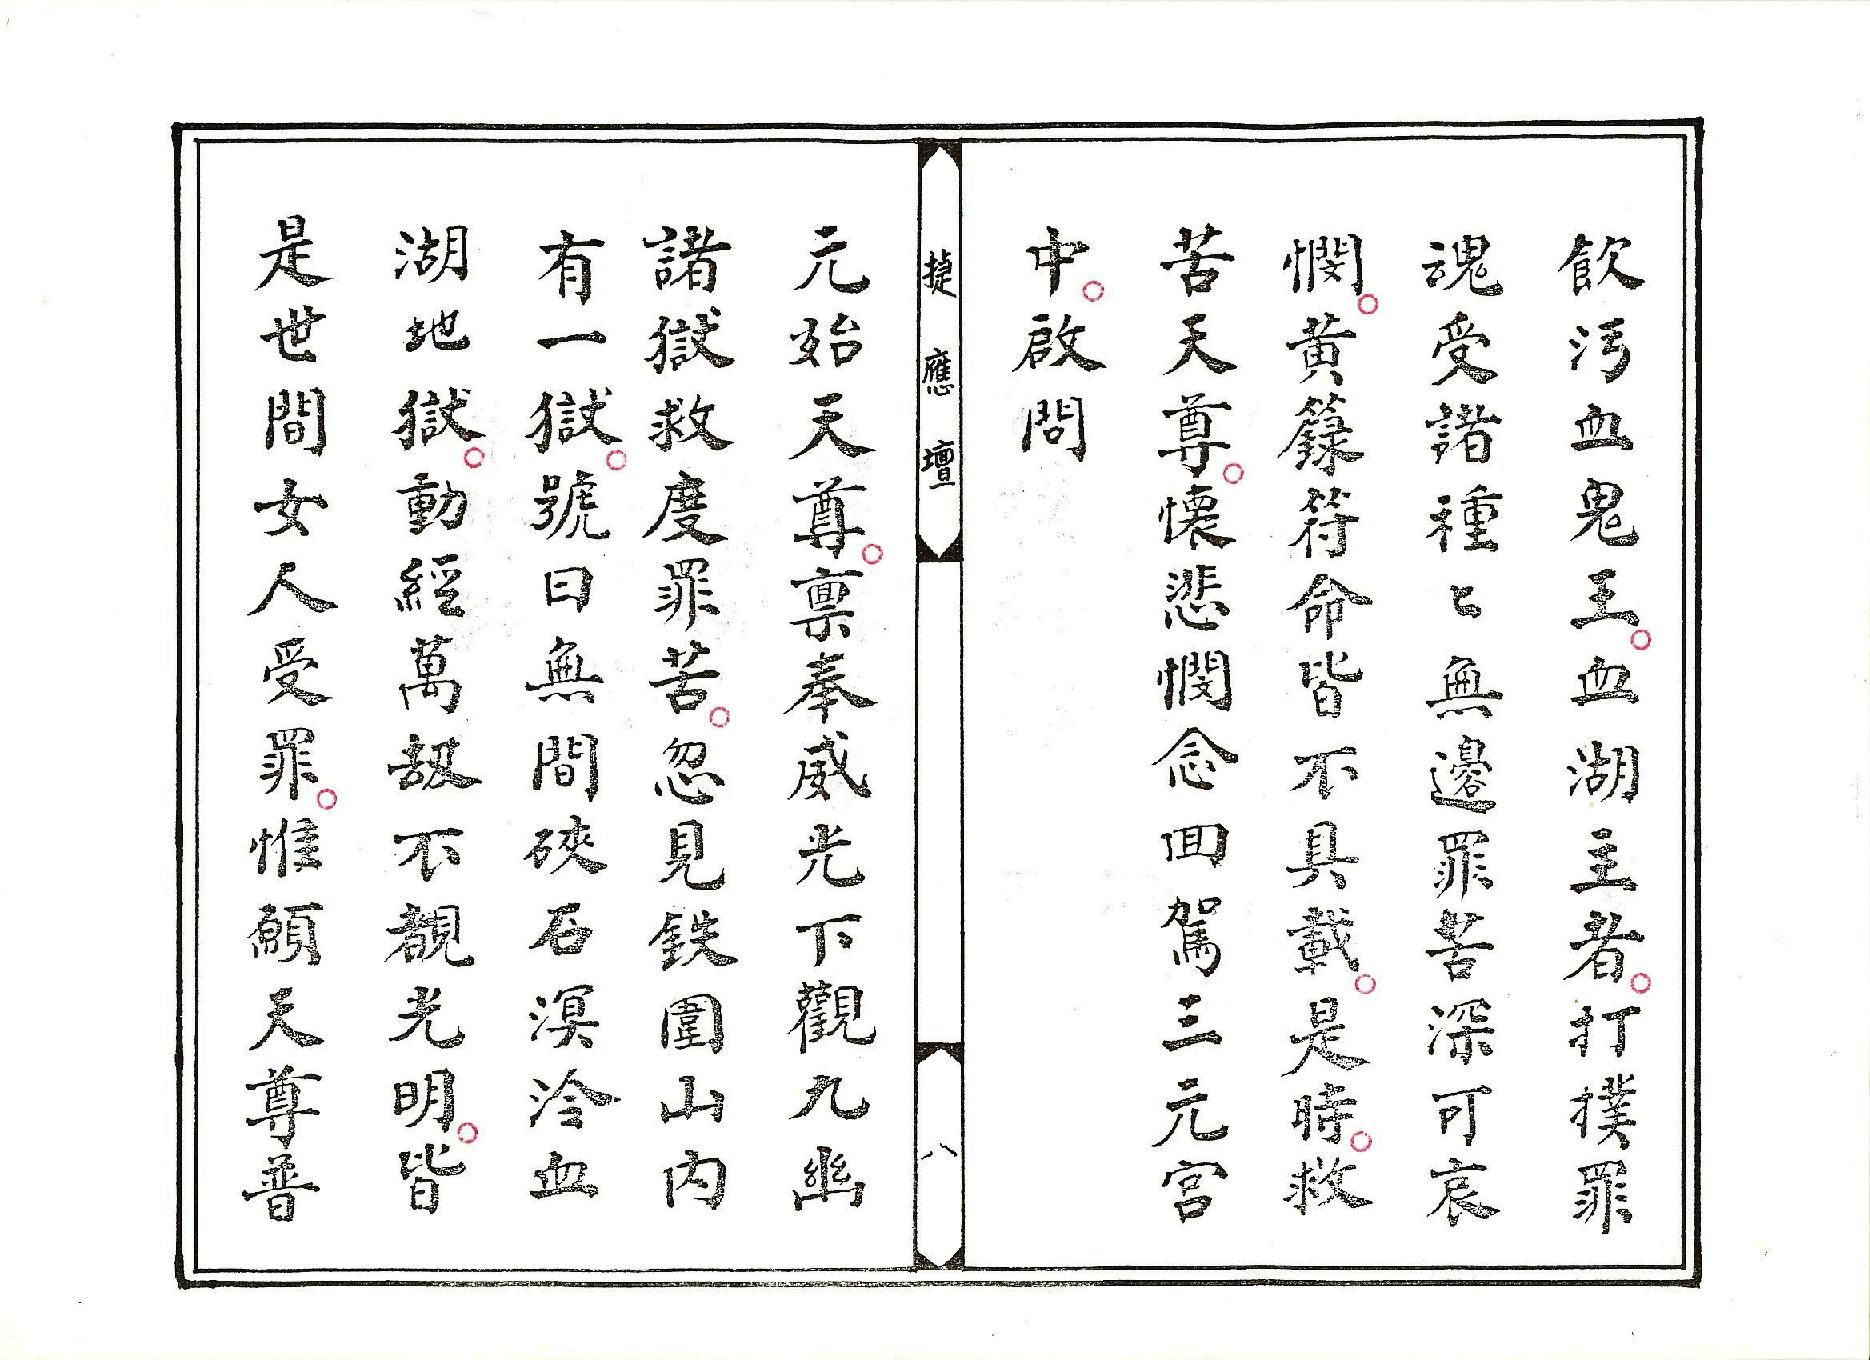 飲污血鬼王。血湖主者。打撲罪
魂受諸種〻無邊罪苦深可哀
憫。黃籙符命皆不具載。是時。救
苦天尊。懷悲憫念回駕三元宮
中。啟問
捷應壇
八
元始天尊。稟奉威光下觀九幽
諸獄救度罪苦。忽見鉄圍山內
有一獄。號曰無間硤石溟泠血
湖地獄。動經萬劫不覩光明。皆
是世間女人受罪。惟願天尊普